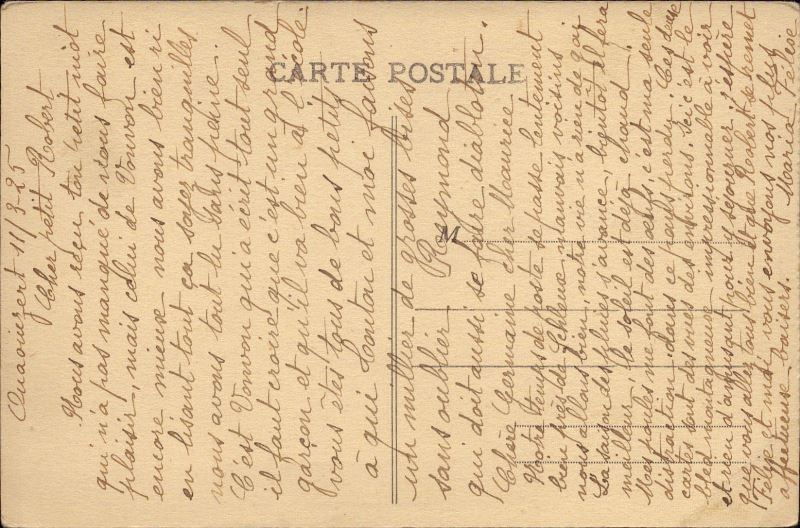 CARTE POSTALE
M
11/3-25
Cher petit Robert
Nous avons reçu ton petit mot
qui n'a pas manqué de nous faire
plaisir, mais celui de Vonvon est
encore mieux nous avons bien ri
en lisant tout ça soyez tranquilles
nous avons tout lu sans peine.
C'est Vonvon qui a écrit tout seul
il faut croire que c'est un grand
garçon et qu'il va bien à l'école.
vous êtes tous de bons petits
à qui Tonton et moi faisons
un millier de grosses bises
sans oublier Raymond
qui doit aussi se faire diablotin.
Chère Germaine cher Maurice
Notre temps de poste se passe lentement
bien près des Chleuhs, mauvais voisins
nous allons bien, notre vie n'a rien de gai
La saison des pluies s'avance, bientôt il fera
meilleur le soleil est déjà chaud.
Mes poules me font des œufs, c'est ma seule
distraction dans ce pays perdu. Ces deux
cartes sont des vues des environs. Ici c'est le
bled montagneux impressionnable à voir
et rien d'amusant pour y séjourner, j'espère
que vous allez tous bien et que Robert se remet
Félix et moi vous envoyons nos plus
affectueux baisers. Maria Félix